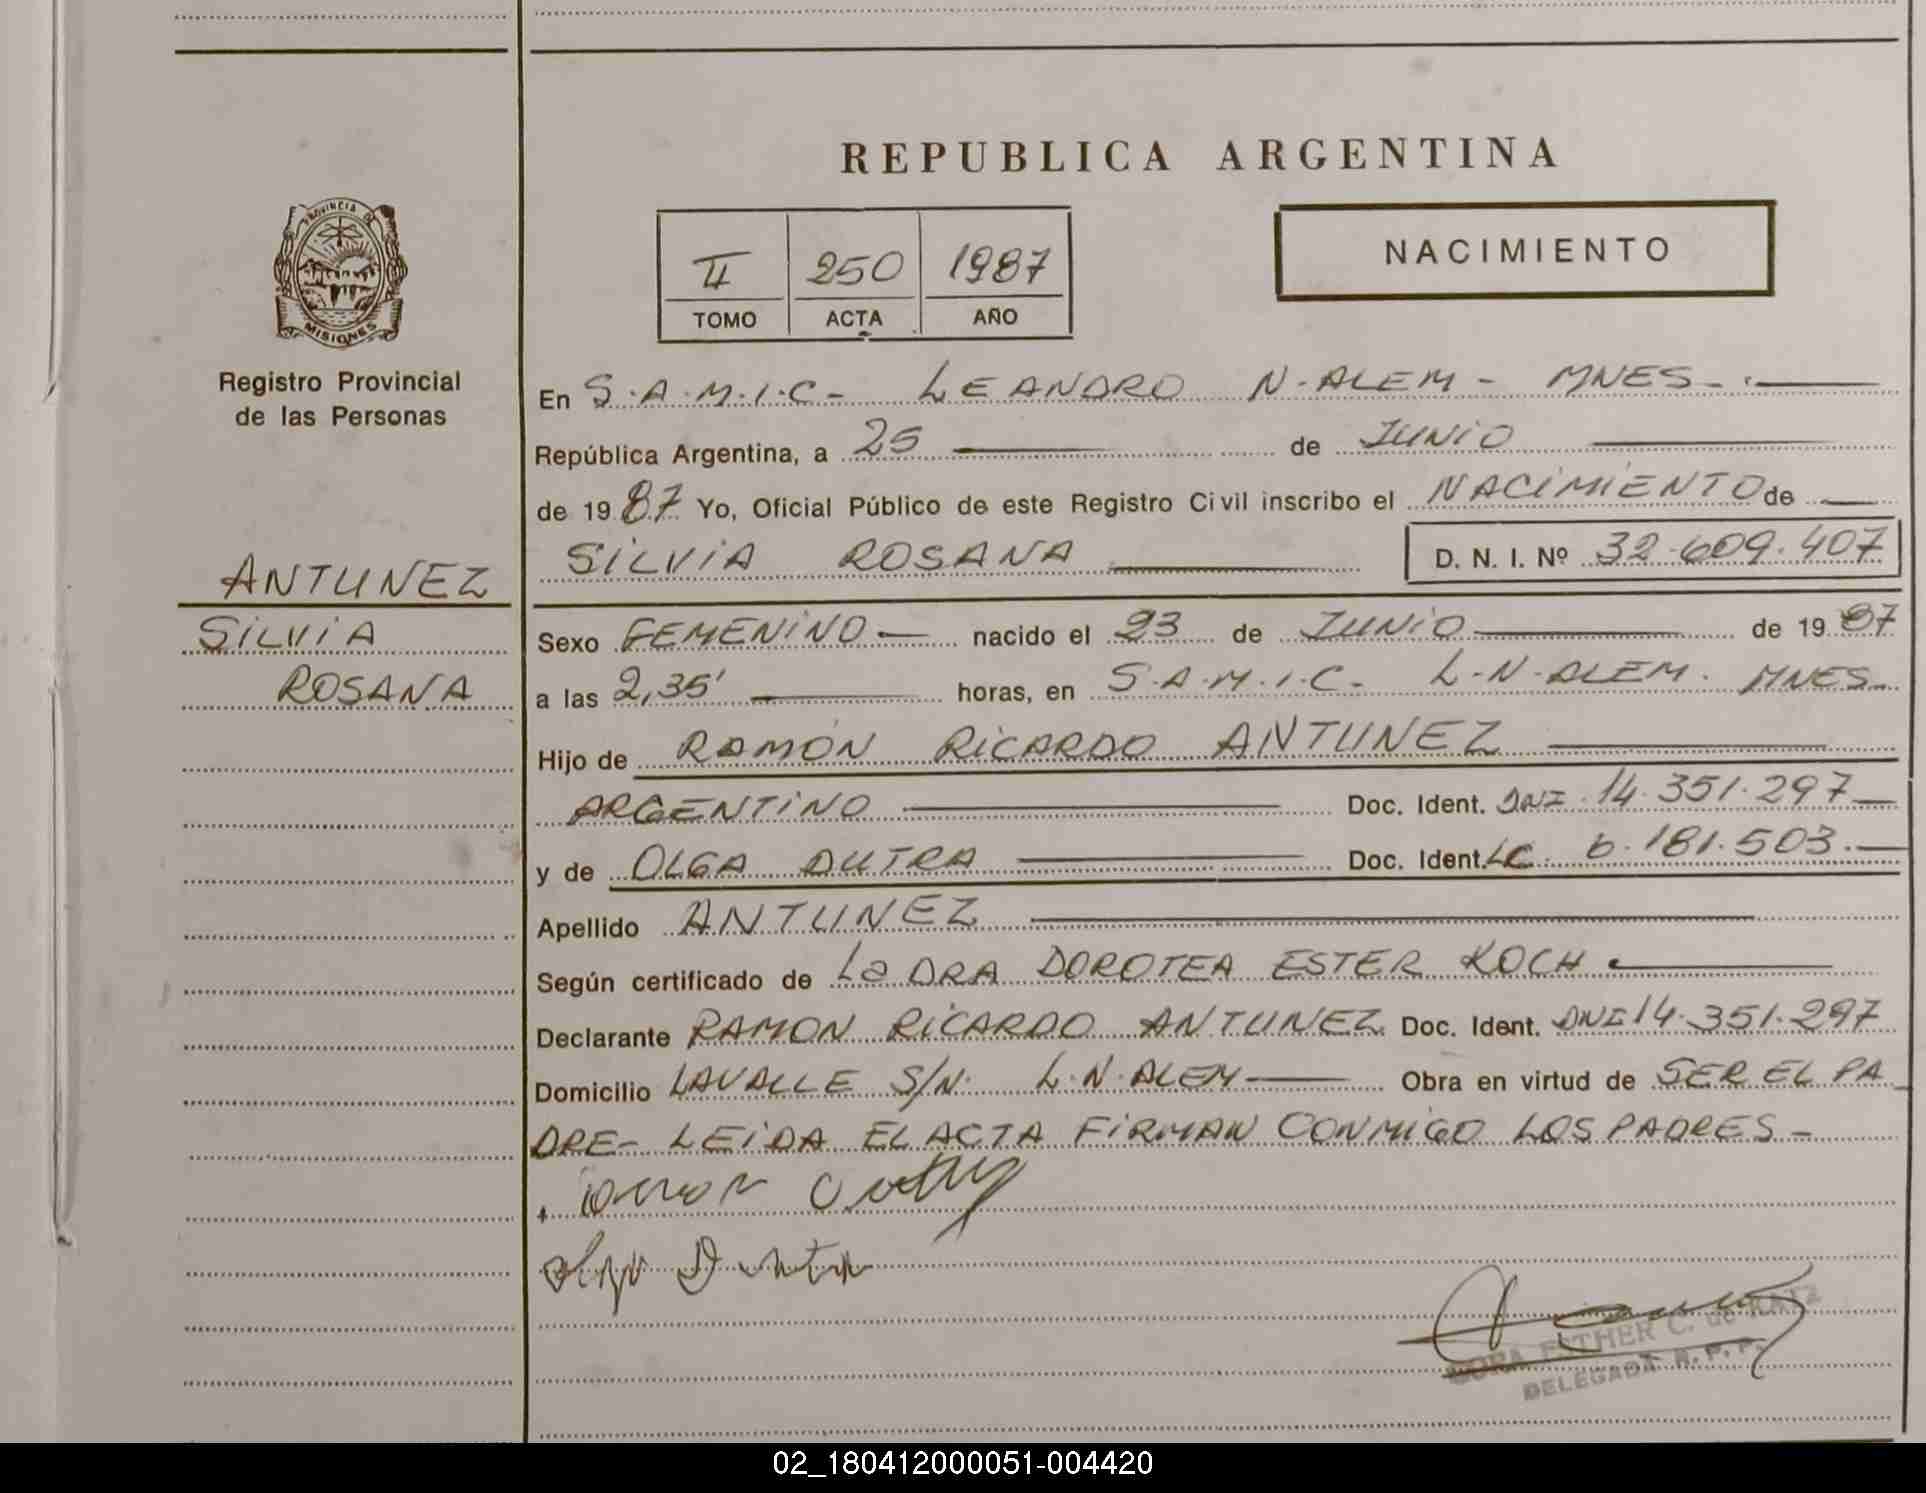 REPUBLICA ARGENTINA
PROVINCIA DE
MISIONES
Registro Provincial
de las Personas
II 250 1987
TOMO ACTA AÑO
NACIMIENTO
En S.A.M.I.C- LEANDRO N-ALEM- MNES-
República Argentina, a 25 de JUNIO
de 1987 Yo, Oficial Público de este Registro Civil inscribo el NACIMIENTO de
SILVIA ROSANA D. N. I. Nº 32.609.407
ANTUNEZ
SILVIA
ROSANA
Sexo FEMENINO nacido el 23 de JUNIO de 1987
a las 2,35' horas, en S.A.M.I.C- L.N.ALEM. MNES-
Hijo de RAMÓN RICARDO ANTUNEZ
ARGENTINO Doc. Ident. DNI 14.351.297
y de OLGA DUTRA Doc. Ident. LC. 6.181.503.
Apellido ANTUNEZ
Según certificado de La DRA DOROTEA ESTER KOCH
Declarante RAMON RICARDO ANTUNEZ Doc. Ident. DNI 14.351.297
Domicilio LAVALLE S/N. L.N.ALEM Obra en virtud de SER EL PA
DRE- LEIDA EL ACTA FIRMAN CONMIGO LOS PADRES-
Olga Dutra
ESTHER C. de
DELEGADA R.P.P.
02_180412000051-004420